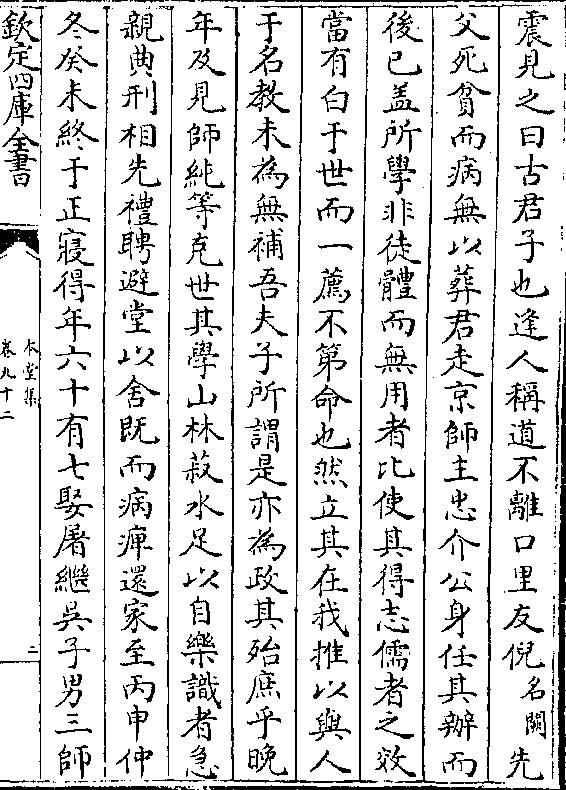 震見之曰古君子也逢人稱道不離口里友倪名闕先
父死貧而病無以葬君走京師主忠介公身任其辦而
後已盖所學非徒體而無用者比使其得志儒者之效
當有白于世而一薦不第命也然立其在我推以與人
于名教未為無補吾夫子所謂是亦為政其殆庶乎晚
年及見師純等克世其學山林菽水足以自樂識者急
親典刑相先禮聘避堂以舍既而病痺還家至丙申仲
冬癸未終于正寢得年六十有七娶屠繼吳子男三師
欽定四庫全書
本堂集
卷九十二
二